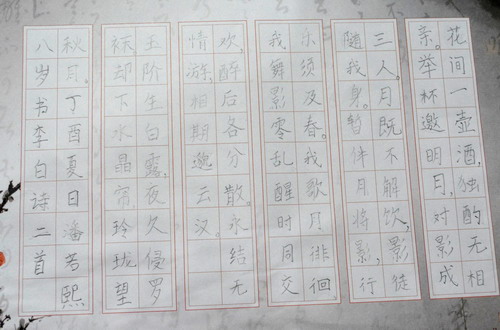 花间一壶酒,独酌无相
亲。举杯邀明月,对影成
三人。月既不解饮,影徒
随我身。暂伴月将影,行
乐须及春。我歌月徘徊
我舞影零乱醒时同交
欢,醉后各分散。永结无
情游,相期邈云汉。
玉阶生白露,夜久侵罗
袜却下水晶帘,玲珑望
秋月。丁酉夏日潘熙
八岁书李白诗二首